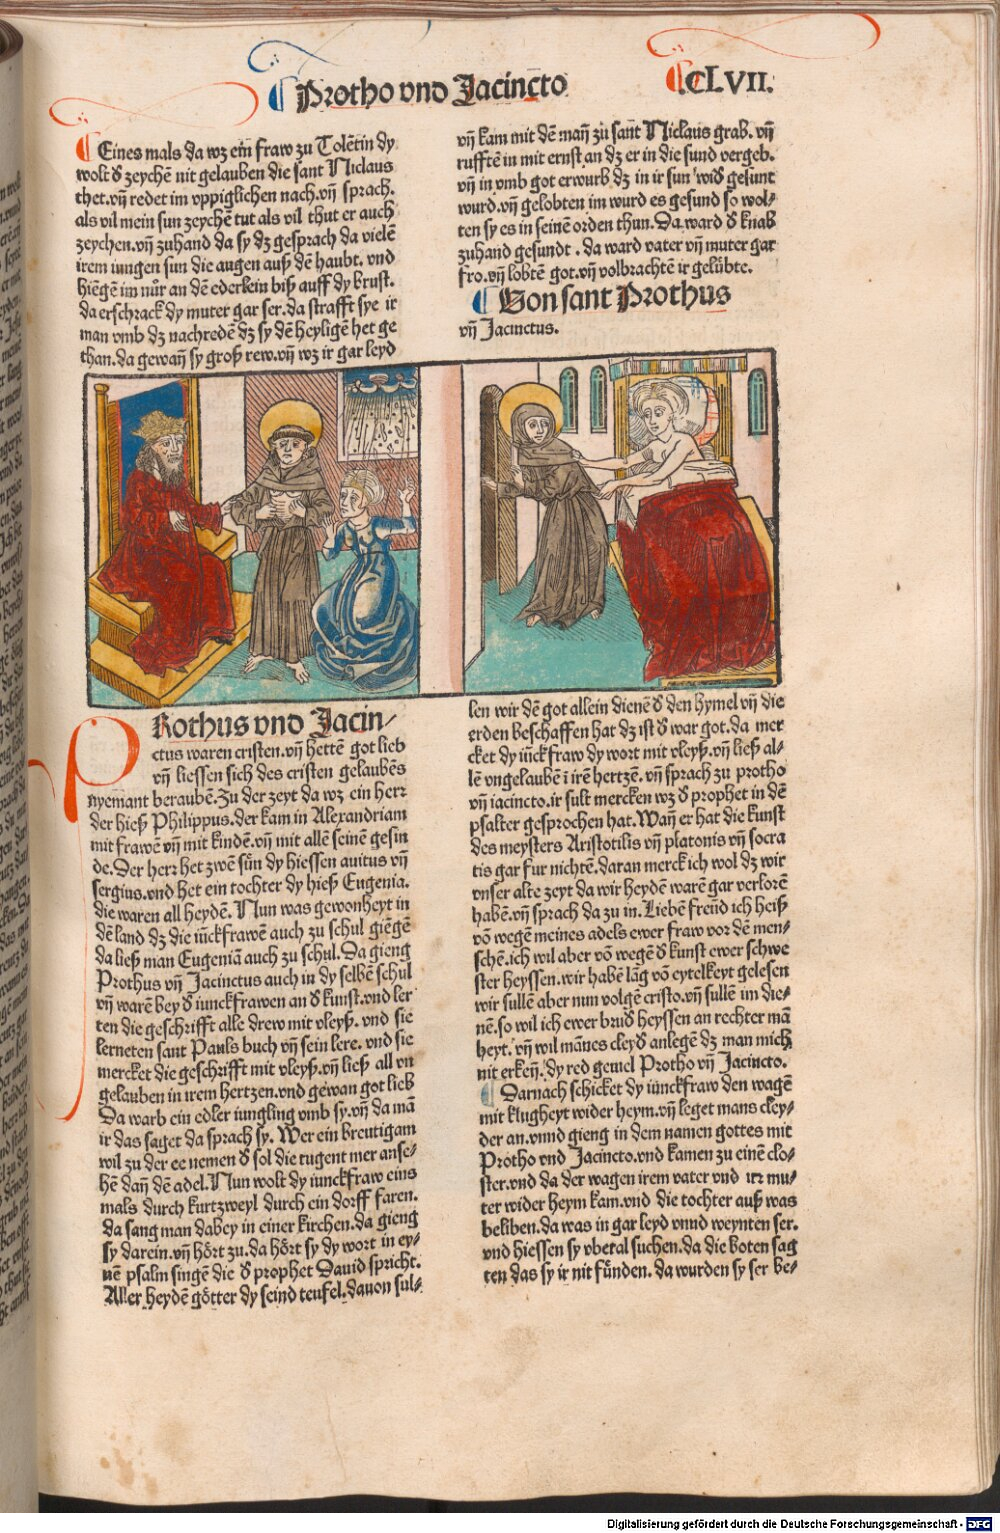 Protho vnd Jacincto
CLVII.
Eines mals da wz ein fraw zu Tolētin dy
wolt d̕ zeychē nit gelauben die sant Niclaus
thet.vn̄ redet im vppiglichen nach.vn̄ sprach.
als vil mein sun zeychē tut als vil thut er auch
zeychen.vn̄ zuhand da sy dz gesprach da vielē
irem iungen sun die augen auß dē haubt. vnd
hiēgē im nůr an dē ederlein biß auff dy brust.
da erschrack dy muter gar ser.da strafft sye ir
man vmb dz nachredē dz sy dē heyligē het ge
than.da gewan̄ sy groß rew.vn̄ wz ir gar leyd
vn̄ kam mit dē man̄ zu sant Niclaus grab. vn̄
rufftē in mit ernst an dz er in die sund vergeb.
vn̄ in vmb got erwurb dz in ir sun wid̕ gesunt
wurd.vn̄ gelobten im wurd es gesund so wol-
ten sy es in seinē orden thun.Da ward d̕ knab
zuhand gesundt . da ward vater vn̄ muter gar
fro.vn̄ lobtē got.vn̄ volbrachtē ir gelübte.
Von sant Prothus
vn̄ Jacinctus.
PRothus vnd Jacin-
ctus waren cristen.vn̄ hettē got lieb
vn̄ liessen sich des cristen gelaubēs
nyemant beraubē.Zu der zeyt da wz ein herr
der hieß Philippus.der kam in Alexandriam
mit frawē vn̄ mit kindē.vn̄ mit allē seinē gesin
de.Der herr het zwē sün dy hiessen auitus vn̄
sergius.vnd het ein tochter dy hieß Eugenia.
die waren all heydē. Nun was gewonheyt in
dē land dz die iūckfrawē auch zu schul giēgē
da ließ man Eugeniā auch zu schul. Da gieng
Prothus vn̄ Jacinctus auch in dy selbē schul
vn̄ warē bey d̕ iunckfrawen an d̕ kunst.vnd ler
ten die geschrifft alle drew mit vleyß. vnd sie
lerneten sant Pauls buch vn̄ sein lere. vnd sie
mercket die geschrifft mit vleyß.vn̄ ließ all vn
gelauben in irem hertzen.vnd gewan got lieb
Da warb ein edler iungling vmb sy.vn̄ da mā
ir das saget da sprach sy. Wer ein breutigam
wil zu der ee nemen d̕ sol die tugent mer anse-
hē dan̄ dē adel.Nun wolt dy iunckfraw eins
mals durch kurtzweyl durch ein dorff faren.
da sang man dabey in einer kirchen.da gieng
sy darein.vn̄ hört zu.da hört sy dy wort in ey-
nē psalm singē die d̕ prophet Dauid spricht.
Aller heydē götter dy seind teufel.dauon sul-
len wir dē got allein dienē d̕ den hymel vn̄ die
erden beschaffen hat dz ist d̕ war got.da mer
cket dy iūckfraw dy wort mit vleyß.vn̄ ließ al-
lē vngelaubē ī irē hertzē. vn̄ sprach zu protho
vn̄ iacincto.ir sult mercken wz d̕ prophet in dē
psalter gesprochen hat.Wan̄ er hat die kunst
des meysters Aristotilis vn̄ platonis vn̄ socra
tis gar fur nichtē.daran merck ich wol dz wir
vnser alte zeyt da wir heydē warē gar verlorē
habē.vn̄ sprach da zu in.Liebē freūd ich heiß
vō wegē meines adels ewer fraw vor dē men-
schē.ich wil aber vō wegē d̕ kunst ewer schwe
ster heyssen.wir habē lāg vō eytelkeyt gelesen
wir sullē aber nun volgē cristo.vn̄ sullē im die-
nē.so wil ich ewer brud̕ heyssen an rechter mā
heyt. vn̄ wil māues cleyd anlegē dz man mich
nit erken̄. dy red geuel Protho vn̄ Jacincto.
Darnach schicket dy iūnckfraw den wagē
mit klugheyt wider heym.vn̄ leget mans cley-
der an.vnnd gieng in dem namen gottes mit
Protho vnd Jacincto.vnd kamen zu einē clo-
ster.vnd da der wagen irem vater vnd irr mu-
ter wider heym kam.vnd die tochter auß was
beliben.da was in gar leyd vnnd weynten ser.
vnd hiessen sy vberal suchen.da die boten sag
ten das sy ir nit fünden. da wurden sy ser be-
Digitalisierung gefördert durch die Deutsche Forschungsgemeinschaft - DFG